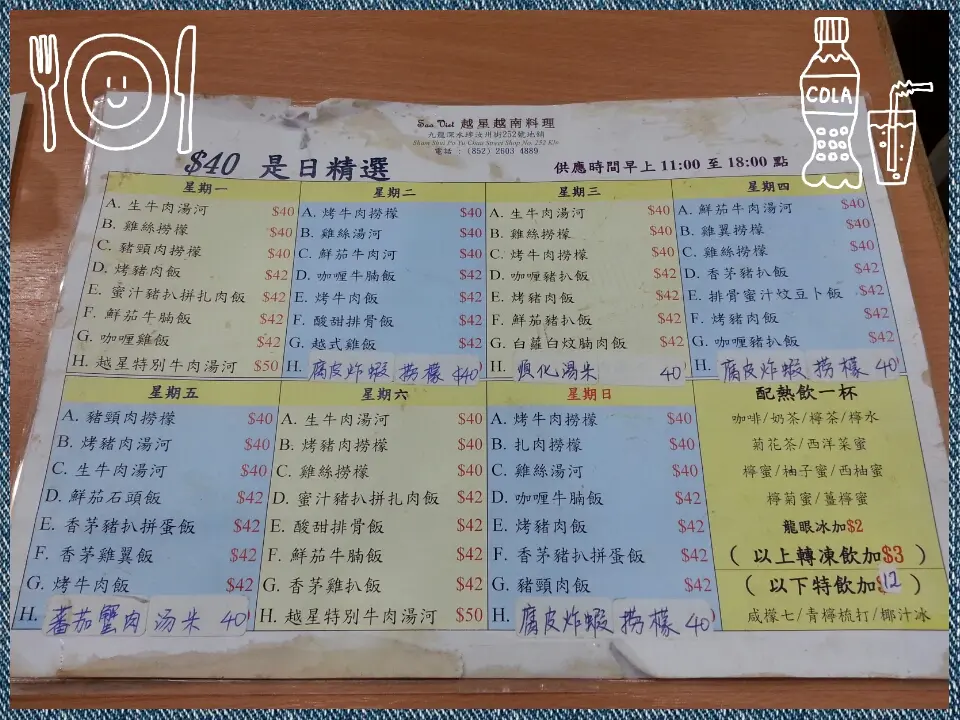 COLA
Sao Viet 越星越南料理
九龍深水埗汝州街252號地舖
Sham Shui Po Yu Chau Street Shop No. 252 Kln
電話 : (852) 2603 4889
$40 是日精選
供應時間早上 11:00 至 18:00 點
星期一
A. 生牛肉湯河 $40
B. 雞絲湯河 $40
C. 豬頸肉撈檬 $40
D. 烤豬肉飯 $42
E. 蜜汁豬扒拼扎肉飯 $42
F. 鮮茄牛腩飯 $42
G. 咖喱雞飯 $42
H. 越星特別牛肉湯河 $50
星期二
A. 烤牛肉撈檬 $40
B. 雞絲湯河 $40
C. 鮮茄牛肉河 $40
D. 咖喱牛腩飯 $42
E. 烤牛肉飯 $42
F. 酸甜排骨飯 $42
G. 越式雞飯 $42
H. 腐皮炸蝦 撈檬 $40
星期三
A. 生牛肉湯河 $40
B. 雞絲撈檬 $40
C. 烤牛肉撈檬 $40
D. 咖喱豬扒飯 $42
E. 烤豬肉飯 $42
F. 鮮茄豬扒飯 $42
G. 白蘿白炆腩肉飯 $42
H. 順化湯朱 40
星期四
A. 鮮茄牛肉湯河 $40
B. 雞翼撈檬 $40
C. 雞絲撈檬 $40
D. 香茅豬扒飯 $42
E. 排骨蜜汁炆豆卜飯 $42
F. 烤豬肉飯 $42
G. 咖喱豬扒飯 $42
H. 腐皮炸蝦 撈檬 40
星期五
A. 豬頸肉撈檬 $40
B. 烤豬肉湯河 $40
C. 生牛肉湯河 $40
D. 鮮茄石頭飯 $42
E. 香茅豬扒拼蛋飯 $42
F. 香茅雞翼飯 $42
G. 烤牛肉飯 $42
H. 蕃茄蟹肉 汤朱 40
星期六
A. 生牛肉湯河 $40
B. 烤豬肉撈檬 $40
C. 雞絲撈檬 $40
D. 蜜汁豬扒拼扎肉飯 $42
E. 酸甜排骨飯 $42
F. 鮮茄牛腩飯 $42
G. 香茅雞扒飯 $42
H. 越星特別牛肉湯河 $50
星期日
A. 烤牛肉撈檬 $40
B. 扎肉撈檬 $40
C. 雞絲湯河 $40
D. 咖喱牛腩飯 $42
E. 烤豬肉飯 $42
F. 香茅豬扒拼蛋飯 $42
G. 豬頸肉飯 $42
H. 腐皮炸蝦 撈檬 40
配熱飲一杯
咖啡/奶茶/檸茶/檸水
菊花茶/西洋菜蜜
檸蜜/柚子蜜/西柚蜜
檸菊蜜/薑檸蜜
龍眼冰加$2
( 以上轉凍飲加$3 )
( 以下特飲加$12 )
咸檬七/青檸梳打/椰汁冰